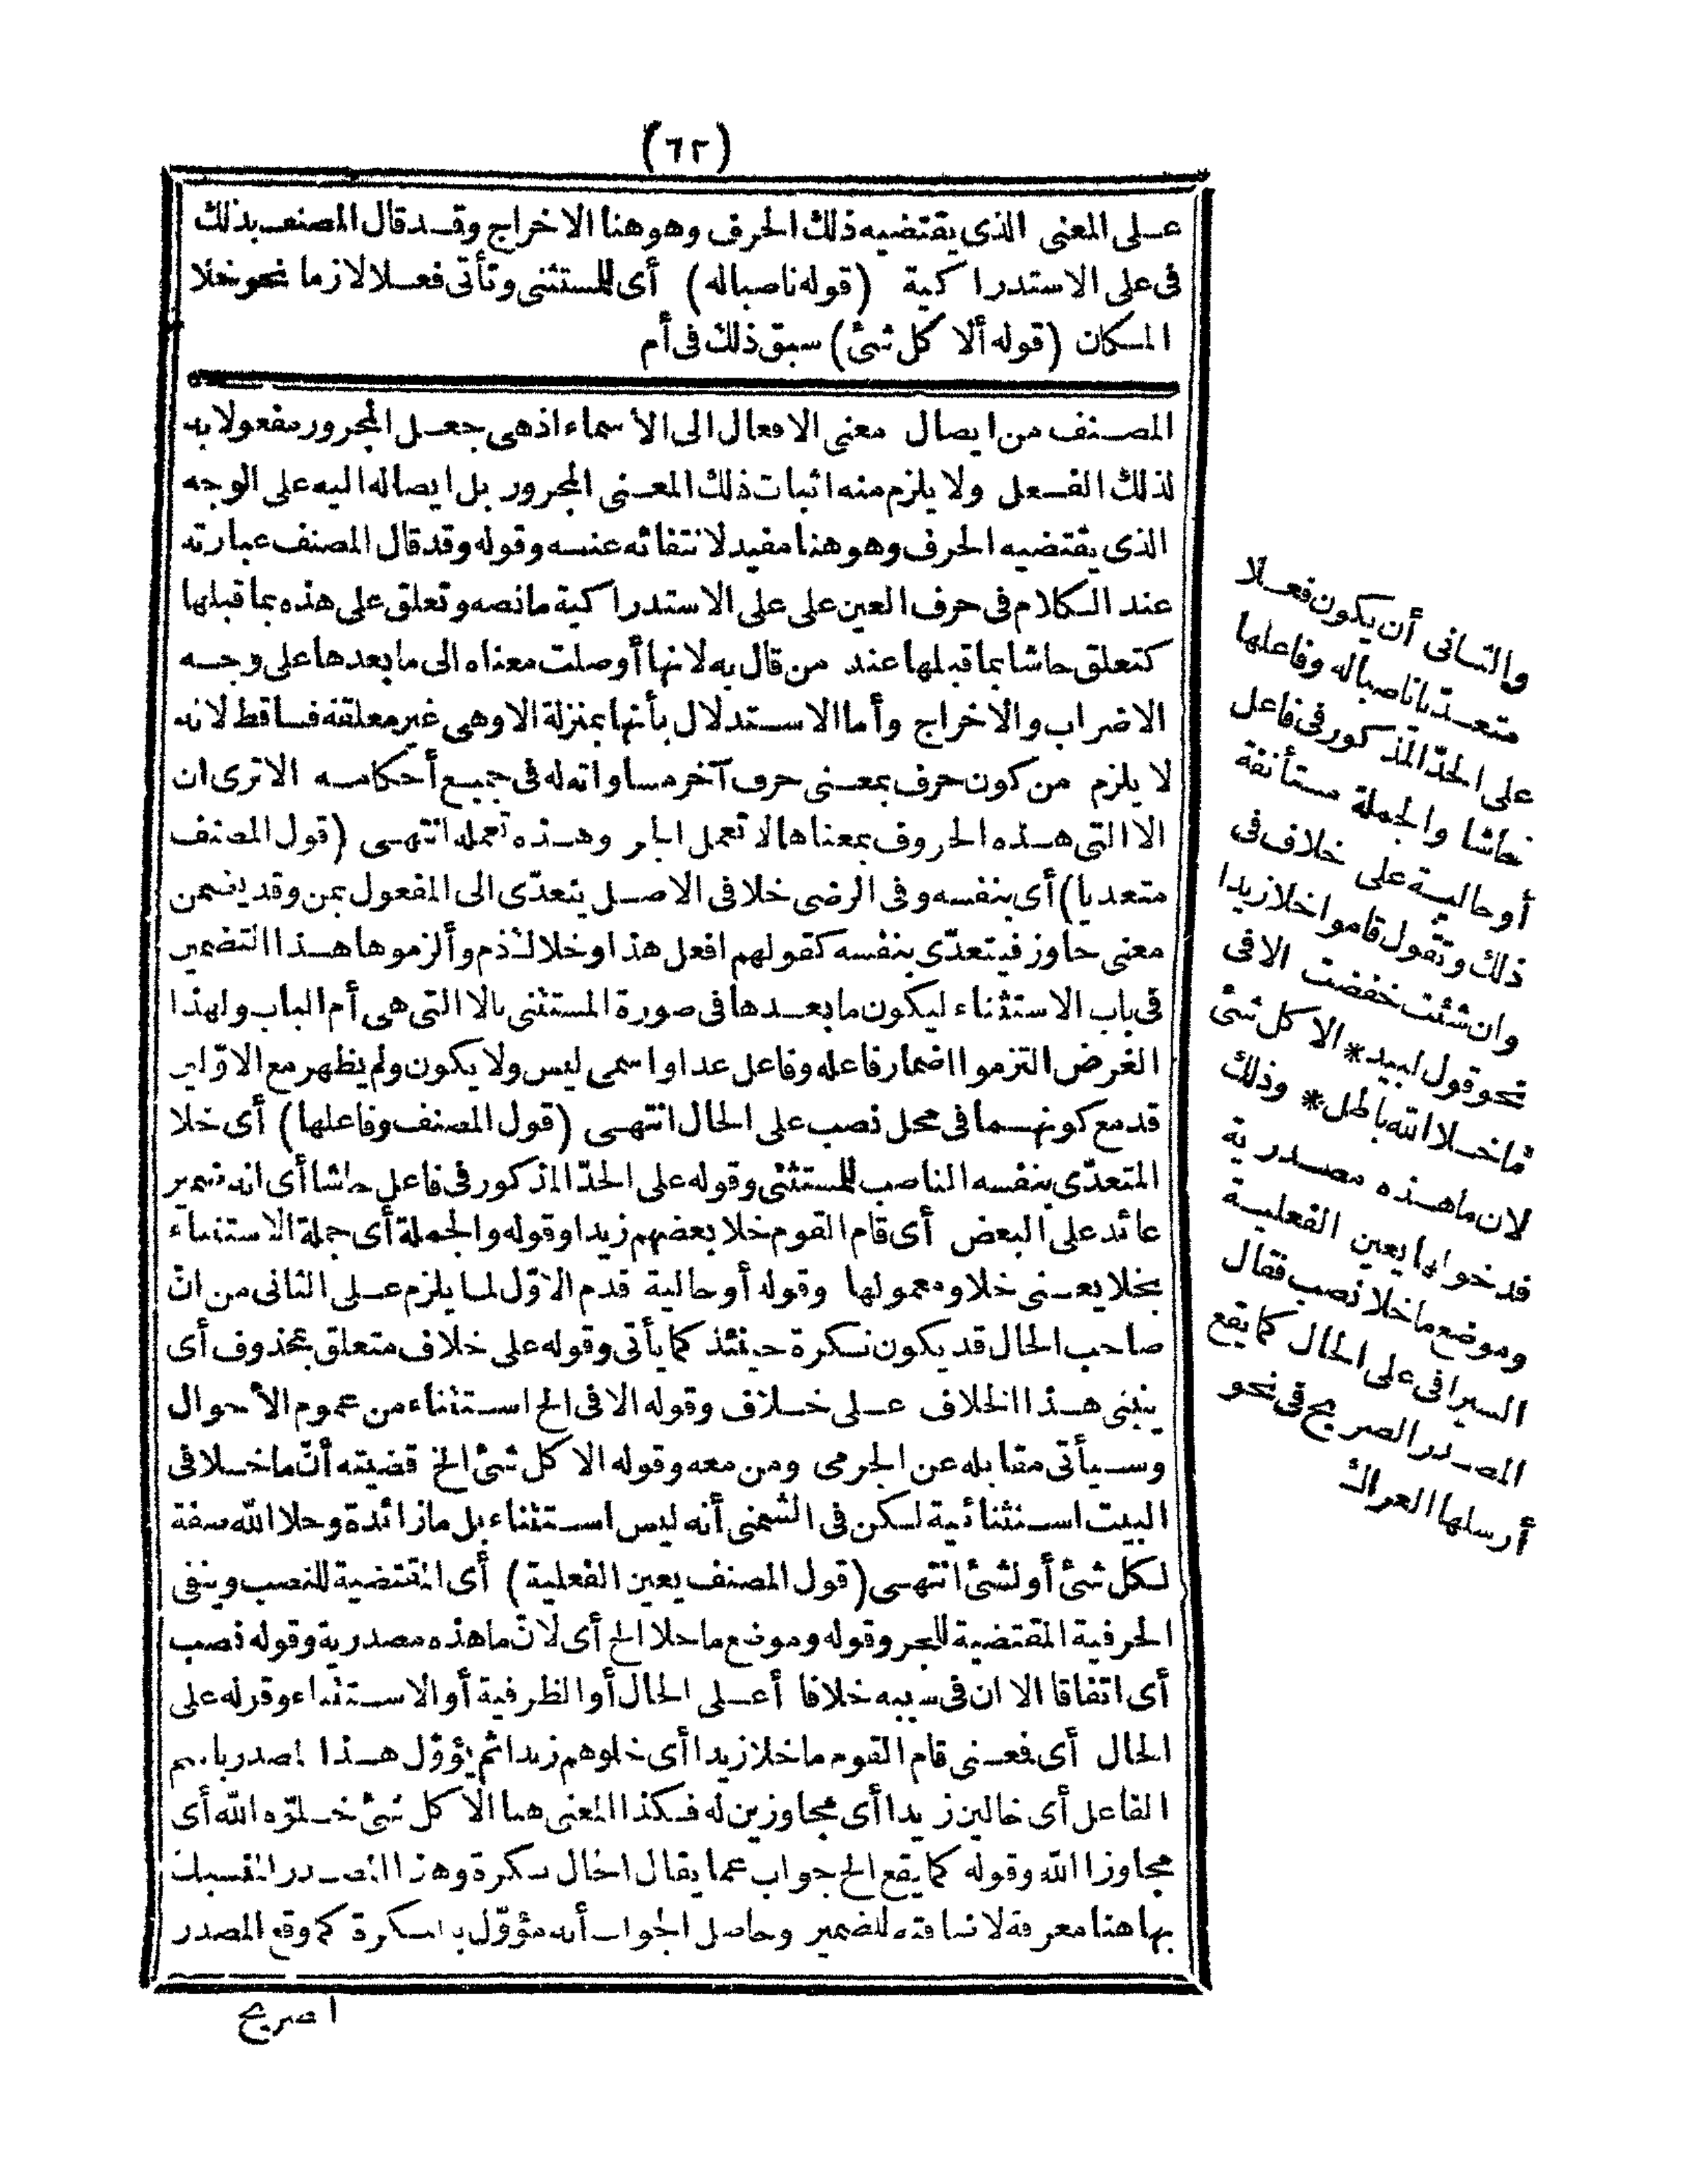 (٦٢)
على المعنى الذى يقتضيه ذلك الحرف وهو هنا الاخراج وقد قال المصنف بذلك
فى على الاستدراكية (قوله ناصباله) أى للمستثنى وتأتى فعلا لازما نحو خلا
المكان (قوله ألا كل شئ) سبق ذلك فى أم
المصنف من ايصال معنى الافعال الى الأسماء اذ هى جعل المجرور مفعولا به
لذلك الفعل ولا يلزم منه اثبات ذلك المعنى المجرور بل ايصاله اليه على الوجه
الذى يقتضيه الحرف وهو هنا مفيد لانتفائه عنه وقوله وقد قال المصنف عبارته
عند الكلام فى حرف العين على على الاستدراكية مانصه وتعلق على هذه بما قبلها
كتعلق حاشا بما قبلها عند من قال به لانها أوصلت معناه الى ما بعدها على وجه
الاضراب والاخراج وأما الاستدلال بأنها بمنزلة الا وهى غير معلقة فساقط لانه
لا يلزم من كون حرف بمعنى حرف آخر مساواته له فى جميع أحكامه الا ترى ان
الا التى هذه الحروف بمعناها لا تعمل الجر وهذه تعمله انتهى (قول المصنف
متعديا) أى بنفسه وفى الرضى خلا فى الاصل يتعدّى الى المفعول بمن وقد يضمن
معنى جاوز فيتعدّى بنفسه كقولهم افعل هذا وخلاك ذم وألزموها هذا التضمين
فى باب الاستثناء ليكون ما بعدها فى صورة المستثنى بالا التى هى أم الباب ولهذا
الغرض التزموا اضمار فاعله وفاعل عدا واسمى ليس ولا يكون ولم يظهر مع الاوّلين
قد مع كونهما فى محل نصب على الحال انتهى (قول المصنف وفاعلها) أى خلا
المتعدّى بنفسه الناصب للمستثنى وقوله على الحدّ المذكور فى فاعل حاشا أى انه ضمير
عائد على البعض أى قام القوم خلا بعضهم زيدا وقوله والجملة أى جملة الاستثناء
بخلا يعنى خلا ومعمولها وقوله أو حالية قدم الاوّل لما يلزم على الثانى من انّ
صاحب الحال قد يكون نكرة حينئذ كما يأتى وقوله على خلاف متعلق بمحذوف أى
ينبنى هذا الخلاف على خلاف وقوله الا فى الخ استثناء من عموم الأحوال
وسيأتى مقابله عن الجرمى ومن معه وقوله الا كل شئ الخ قضيته أنّ ما خلا فى
البيت استثنائية لكن فى الشمنى أنه ليس استثناء بل ما زائدة وخلا الله صفة
لكل شئ أو لشئ انتهى (قول المصنف يعين الفعلية) أى المقتضية للنصب وينفى
الحرفية المقتضية للجر وقوله وموضع ما خلا الخ أى لانّ ما هذه مصدرية وقوله نصب
أى اتفاقا الا ان فى سببه خلافا أعلى الحال أو الظرفية أو الاستثناء وقوله على
الحال أى فمعنى قام القوم ما خلا زيدا أى خلوهم زيدا ثم يؤوّل هذا المصدر باسم
الفاعل أى خالين زيدا أى مجاوزين له فكذا المعنى هنا ألا كل شئ خلوّه الله أى
مجاوزا الله وقوله كما يقع الخ جواب عما يقال الحال نكرة وهذا المصدر المنسبك
بها هنا معرفة لاضافته للضمير وحاصل الجواب أنه مؤوّل بالنكرة كما وقع المصدر
الصريح
والثانى أن يكون فعلا
متعدّيا ناصبا له وفاعلها
على الحدّ المذكور فى فاعل
حاشا والجملة مستأنفة
أو حالية على خلاف فى
ذلك وتقول قاموا خلا زيدا
وان شئت خفضت الا فى
نحو قول لبيد * الا كل شئ
ما خلا الله باطل * وذلك
لان ما هذه مصدرية
فدخولها يعين الفعلية
وموضع ما خلا نصب فقال
السيرافى على الحال كما يقع
المصدر الصريح فى نحو
أرسلها العراك